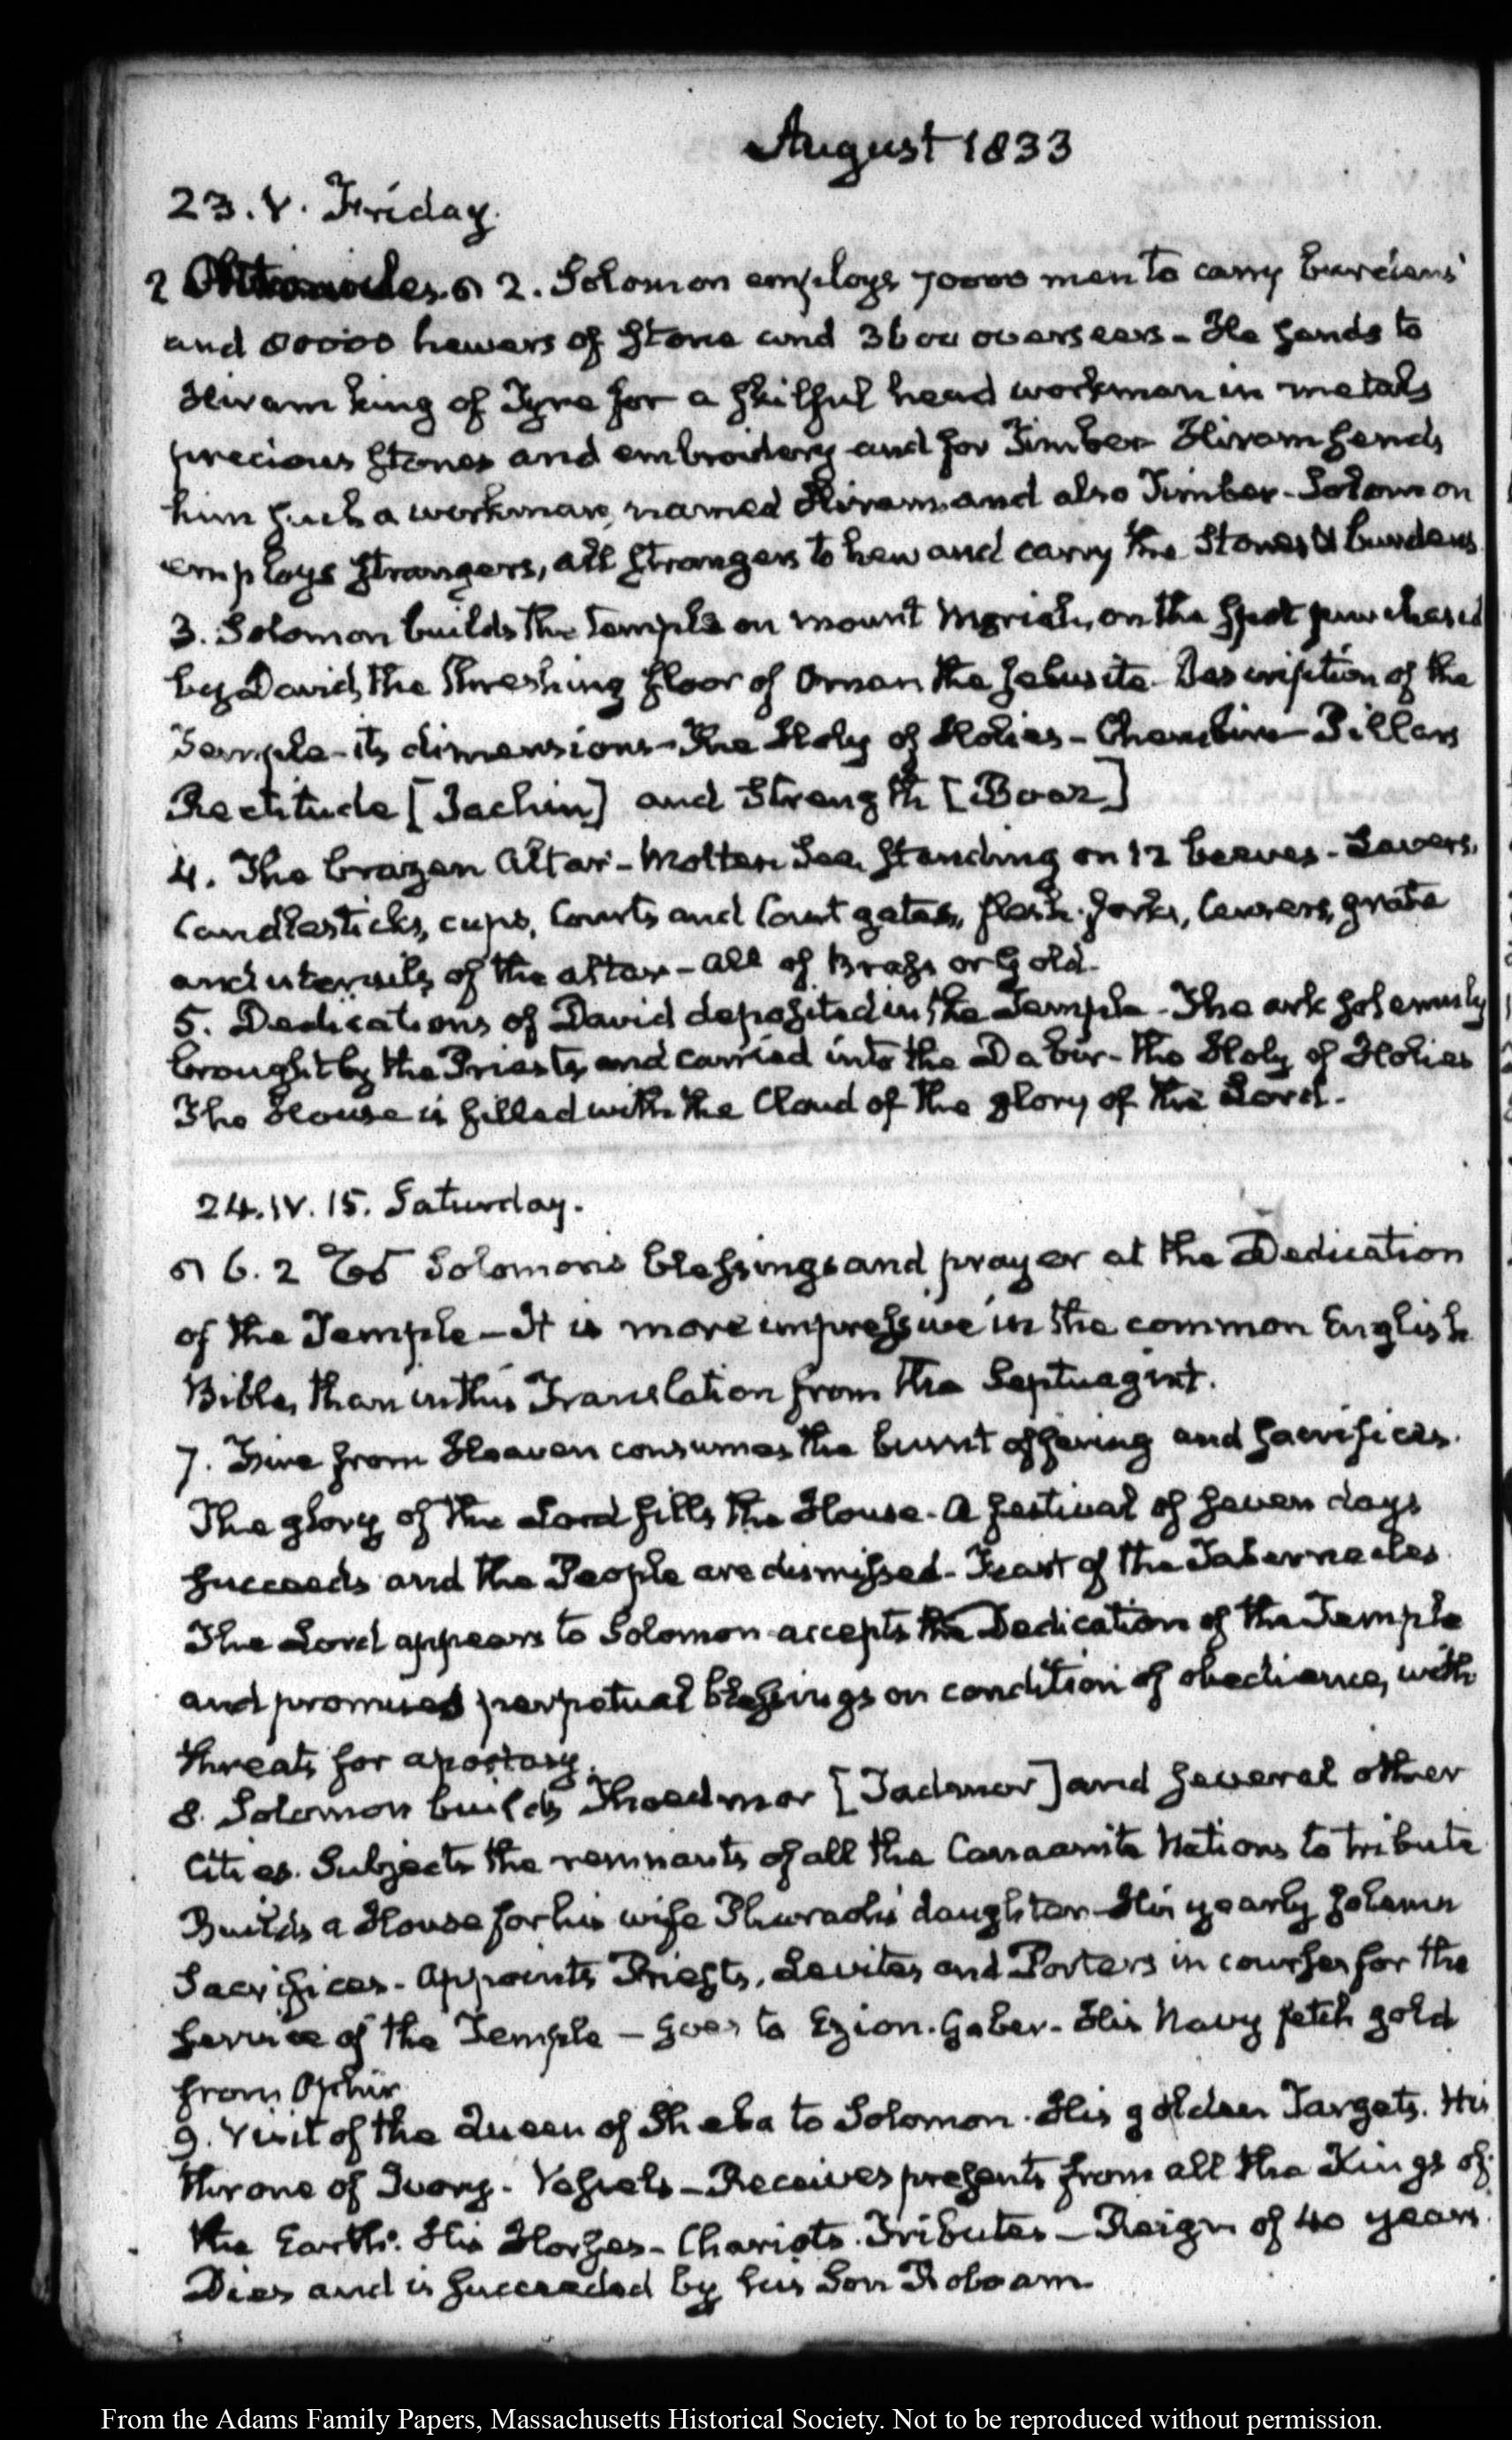 August 1833
23. V. Friday.
2 Chronicles. 2. Solomon employs 70000 men to carry burdens
and 80000 hewers of stone and 3600 overseers - He sends to
Hiram king of Tyre for a skilful head workman in metals
precious stones and embroidery and for Timber Hiram sends
him such a workman, named Hiram and also Timber - Solomon
employs strangers, all strangers to hew and carry the Stones & burdens
3. Solomon builds the temple on mount Moriah, on the spot purchased
by David, the threshing floor of Ornan the Jebusite - Description of the
Temple - its dimensions - The Holy of Holies - Cherubim - Pillars
Rectitude [Jachin] and Strength [Boaz]
4. The brazen Altar - Molten Sea, standing on 12 beeves - Lavers,
Candlesticks, cups, Courts and Court gates, flesh-forks, censers, grate
and utensils of the altar - all of Brass or Gold.
5. Dedications of David deposited in the Temple - The ark solemnly
brought by the Priests, and carried into the Dabir - the Holy of Holies
The House is filled with the Cloud of the glory of the Lord.
24. IV. 15. Saturday.
6. 2 Solomon's blessings and prayer at the Dedication
of the Temple - It is more impressive in the common English
Bible, than in this Translation from the Septuagint.
7. Fire from Heaven consumes the burnt offering and sacrifices.
The glory of the Lord fills the House. A festival of seven days
succeeds and the People are dismissed - Feast of the Tabernacles
The Lord appears to Solomon accepts the Dedication of the Temple
and promises perpetual blessings on condition of obedience, with
threats for apostasy.
8. Solomon builds Thoedmor [Tadmor] and several other
Cities. Subjects the remnants of all the Canaanite Nations to tribute
Builds a House for his wife Pharaoh's daughter - His yearly solemn
Sacrifices - Appoints Priests, Levites and Porters in courses for the
service of the Temple - goes to Ezion-Gaber - His Navy fetch gold
from Ophir
9. Visit of the Queen of Sheba to Solomon. His golden Targets. His
throne of Ivory. Vessels - Receives presents from all the Kings of
the Earth. His Horses - Chariots. Tributes - Reign of 40 years.
Dies and is succeeded by his Son Roboam.
From the Adams Family Papers, Massachusetts Historical Society. Not to be reproduced without permission.